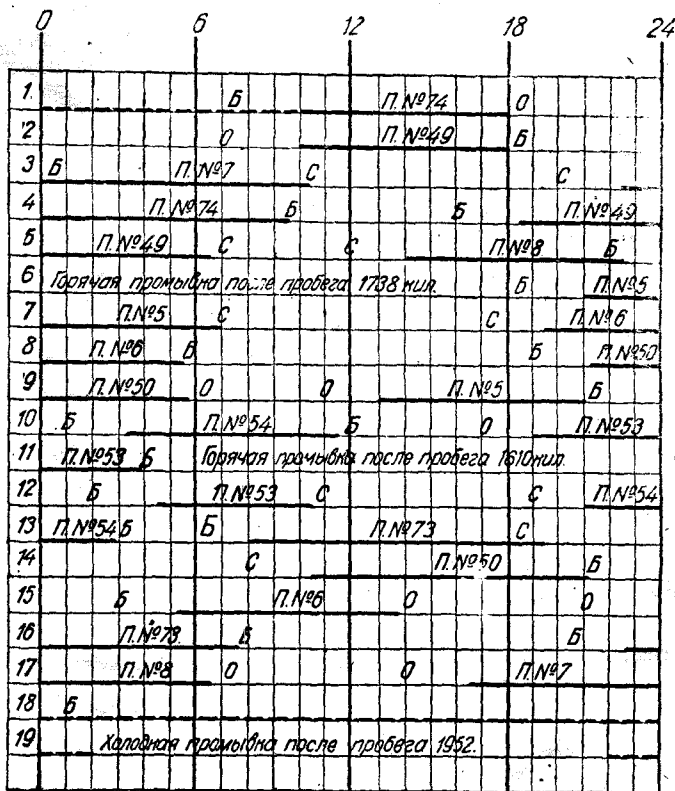 0 6 12 18 24
1. Б П.№74 О
2 О П.№49 Б
3 Б П.№7 С С
4 П.№74 Б Б П.№49
5 П.№49 С С П.№8 Б
6 Горячая промывка после пробега 1738 кил. Б П.№5
7 П.№5 С С П.№6
8 П.№6 Б Б П.№50
9 П.№50 О О П.№5 Б
10 Б П.№54 Б О П.№53
11 П.№53 Б Горячая промывка после пробега 1610 кил.
12 Б П.№53 С С П.№54
13 П.№54 Б Б П.№73 С
14 С П.№50 Б
15 Б П.№6 О О
16 П.№73 Б Б
17 П.№8 О О П.№7
18 Б
19 Холодная промывка после пробега 1952.